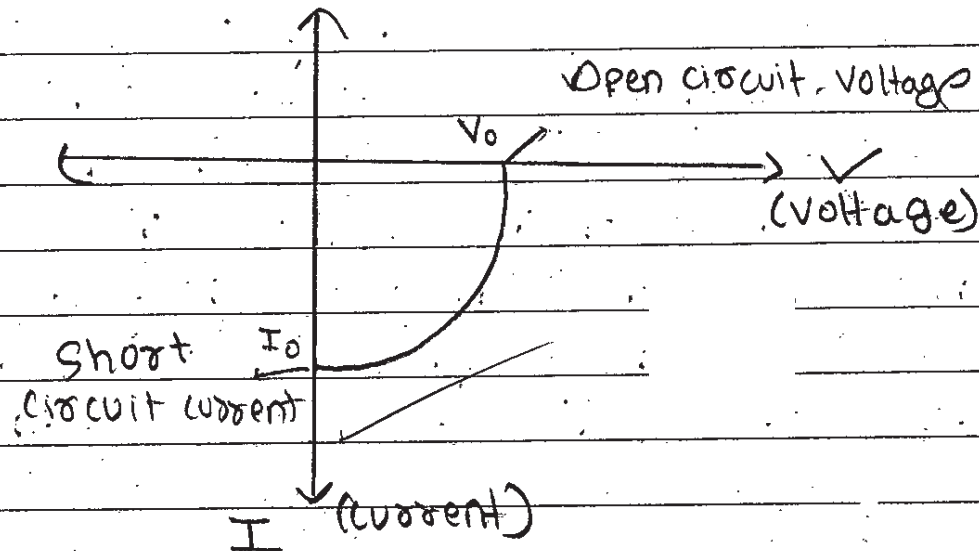 Open circuit. voltage
V₀
V
(voltage)
Short I₀
circuit current
I (current)